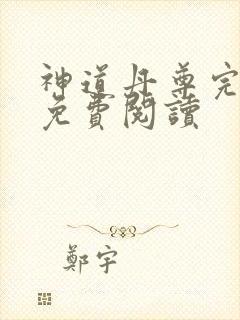 神道丹尊完
免費閱讀
鄭宇